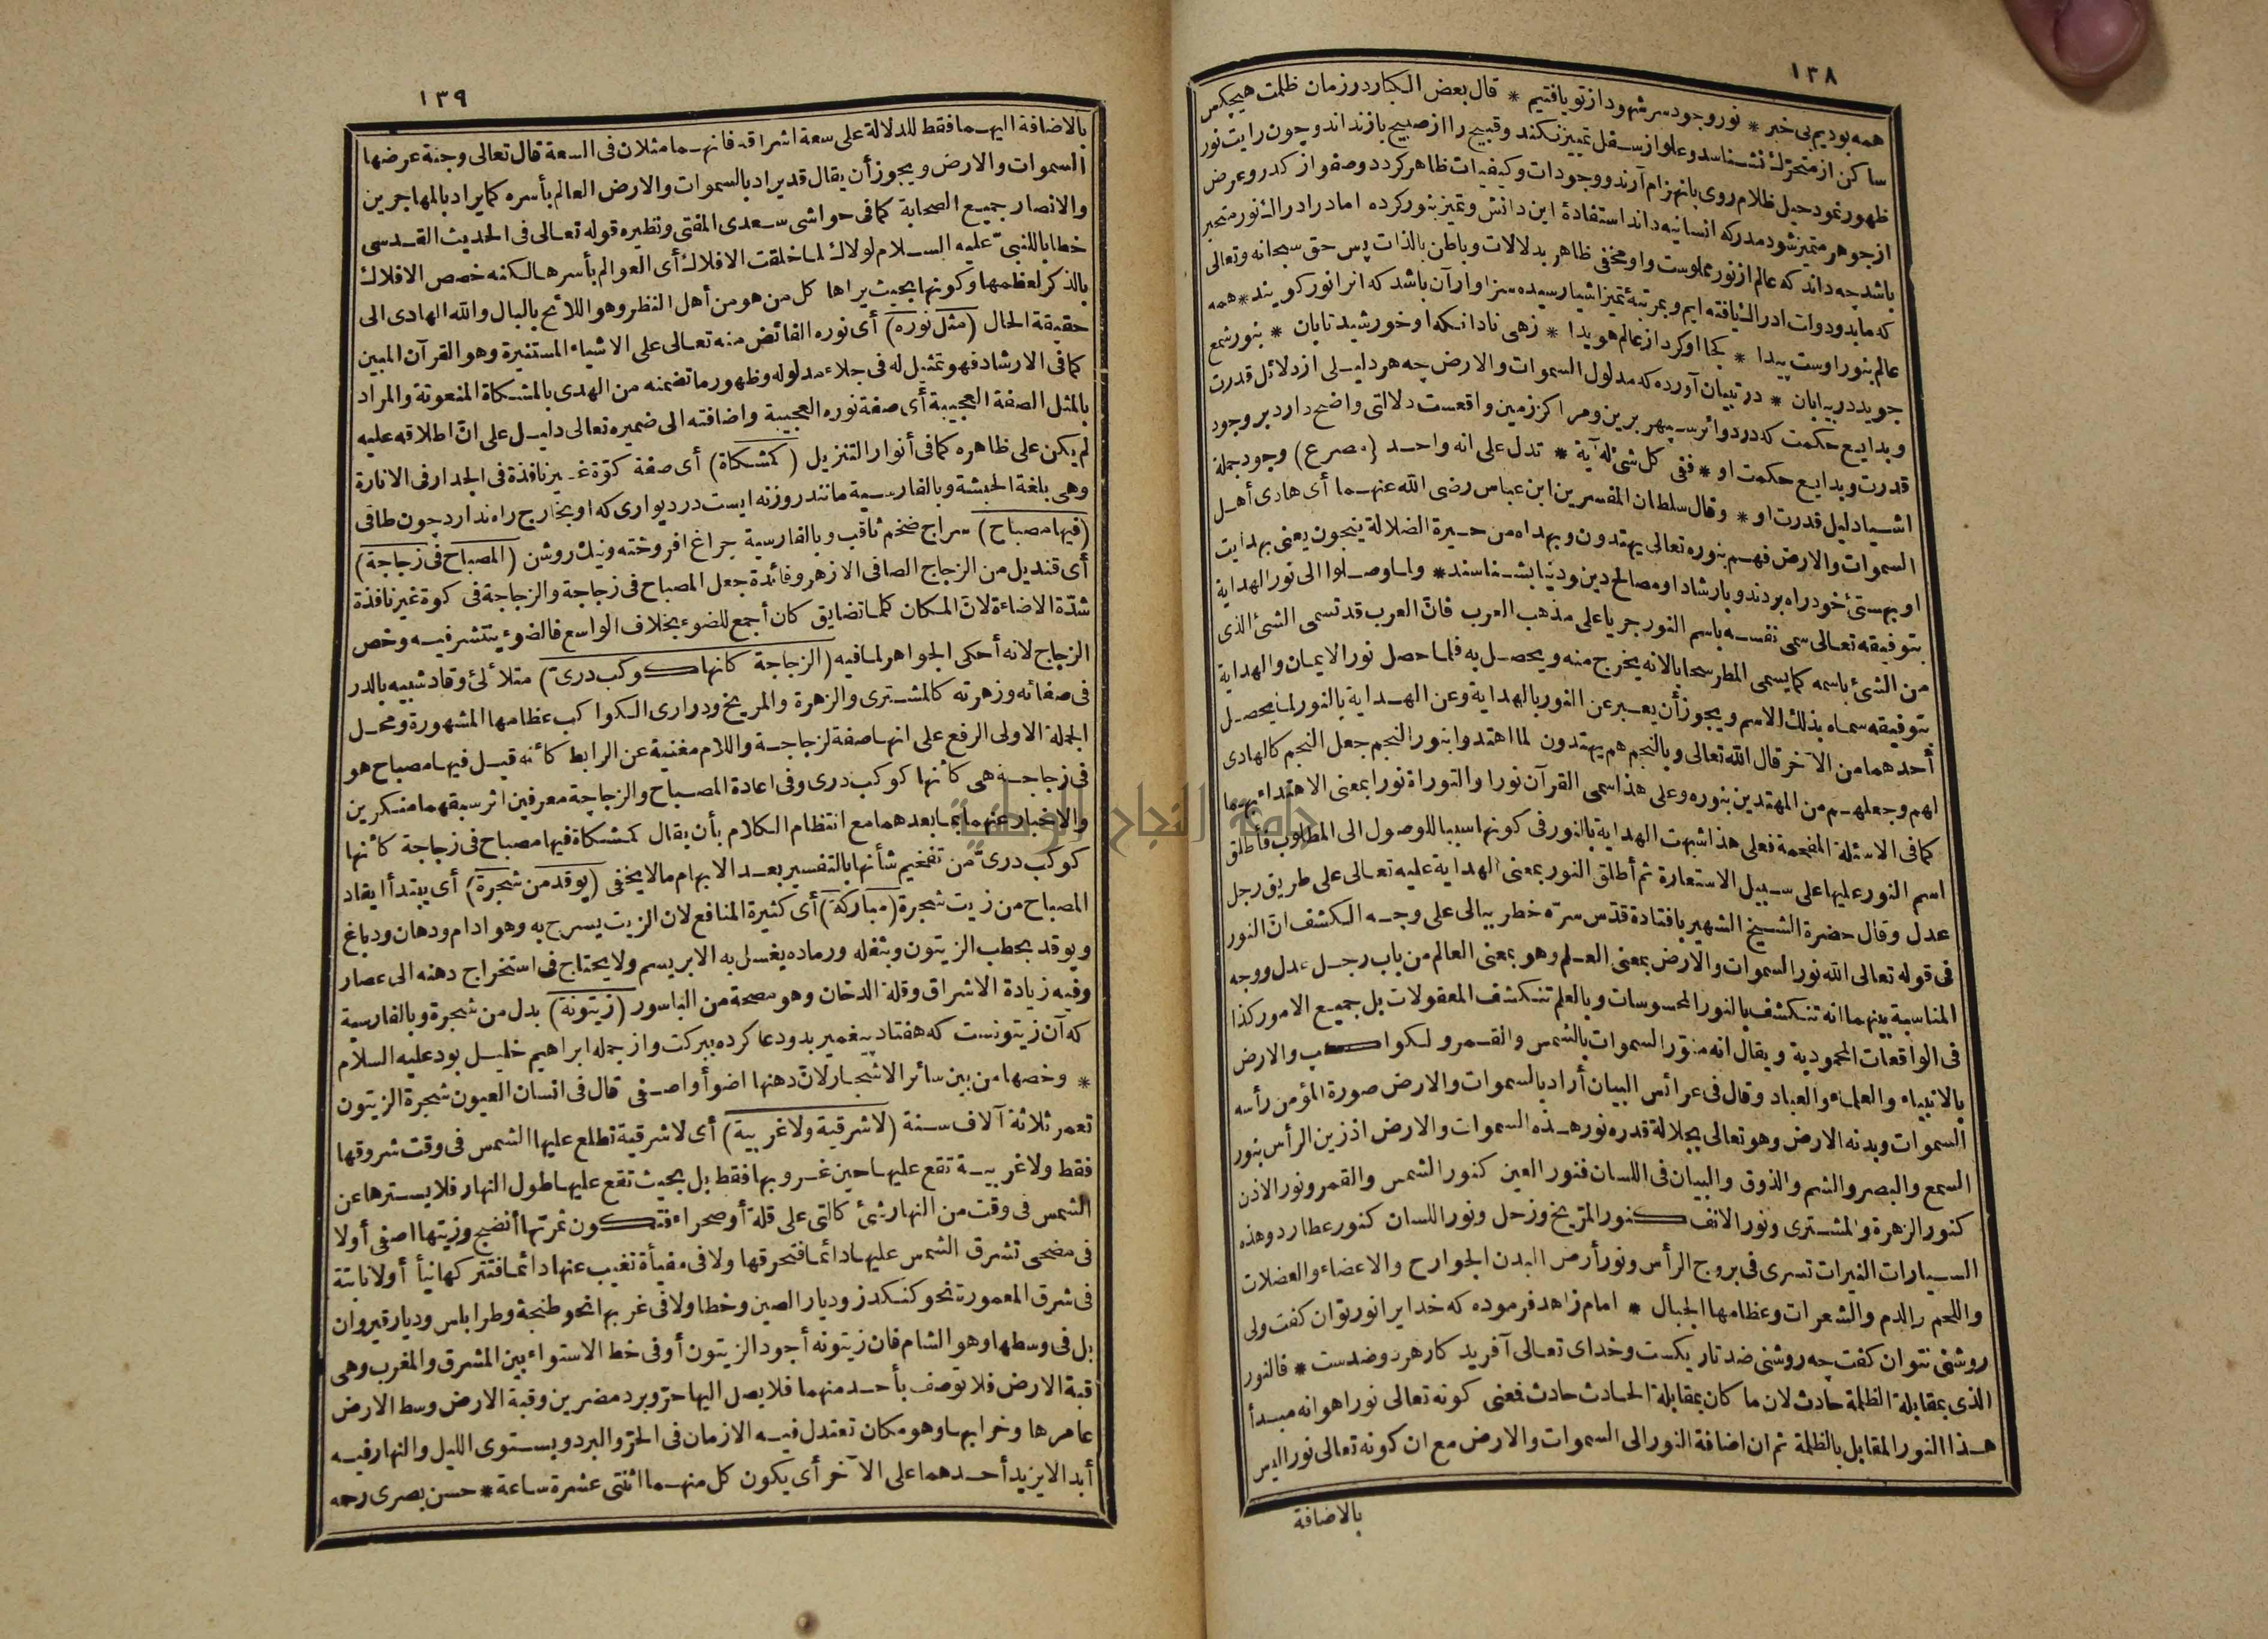 ١٣٨
همه بوديم بى خبر * نور وجود سر شهود از تو يافتيم * قال بعض الكبار در زمان ظلمت هيچكس
ساكن از متحرّك نشناسد وعلو از سفل تمييز نكند وقبيح را از صبيح باز نداند وچون رايت نور
ظهور نمود حيل ظلام روى بانهزام آرند ووجودات وكيفيات ظاهر كردد وصفو از كدر وعرض
از جوهر متميز شود مدركه انسانيه داند استفادۀ اين دانش وتميز بنور كرده اما در ادراك نور متحير
باشد چه داند كه عالم از نور مملوست واو مخفى ظاهر بدلالات وباطن بالذات پس حق سبحانه وتعالى
كه مابدو دوات ادراك يافته ايم وبمرتبۀ تميز اشيا رسيده سزاوار آن باشد كه انرا نور كويند * همه
عالم بنور اوست پيدا * كجا او كردد از عالم هويدا * زهى نادان كه او خورشيد تابان * بنور شمع
جويد در بيابان * در تبيان آورده كه مدلول السموات والارض چه هر دليلى از دلائل قدرت
وبدايع حكمت كه در دوائر سپهر برين ومراكز زمين واقعست دلالتى واضح دارد بر وجود
قدرت وبدايع حكمت او * ففى كل شئ له آية * تدل على انه واحد (مصرع) وجود جملۀ
اشيا دليل قدرت او * وقال سلطان المفسرين ابن عباس رضى الله عنهما أى هادى أهل
السموات والارض فهم بنوره تعالى يهتدون وبهداه من حيرة الضلالة ينجون يعنى بهدايت
او بهستئ خود راه بردند وبارشاد او مصالح دين ودنيا بشناسند * ولما وصلوا الى نور الهداية
بتوفيقه تعالى سمى نفسه باسم النور جريا على مذهب العرب فانّ العرب قد تسمى الشئ الذى
من الشئ باسمه كما يسمى المطر سحابا لانه يخرج منه ويحصل به فلما حصل نور الايمان والهداية
بتوفيقه سماه بذلك الاسم ويجوز أن يعبر عن النور بالهداية وعن الهداية بالنور لما يحصل
أحدهما من الآخر قال الله تعالى وبالنجم هم يهتدون لما اهتدوا بنور النجم جعل النجم كالهادى
لهم وجعلهم من المهتدين بنوره وعلى هذا سمى القرآن نورا والتوراة نورا بمعنى الاهتداء بهما
كما فى الاسئلة المقحمة فعلى هذا شبهت الهداية بالنور فى كونها سببا للوصول الى المطلوب فأطلق
اسم النور عليها على سبيل الاستعارة ثم أطلق النور بمعنى الهداية عليه تعالى على طريق رجل
عدل وقال حضرة الشيخ الشهير بافتادة قدّس سرّه خطر ببالى على وجه الكشف انّ النور
فى قوله تعالى الله نور السموات والارض بمعنى العلم وهو بمعنى العالم من باب رجل عدل ووجه
المناسبة بينهما انه تنكشف بالنور المحسوسات وبالعلم تنكشف المعقولات بل جميع الامور كذا
فى الواقعات المحمودية ويقال انه منوّر السموات بالشمس والقمر ولكواكب والارض
بالانبياء والعلماء والعباد وقال فى عرائس البيان أراد بالسموات والارض صورة المؤمن رأسه
السموات وبدنه الارض وهو تعالى بجلالة قدره نور هذه السموات والارض اذ زين الرأس بنور
السمع والبصر والشم والذوق والبيان فى اللسان فنور العين كنور الشمس والقمر ونور الاذن
كنور الزهرة والمشترى ونور الانف كنور المرّيخ وزحل ونور اللسان كنور عطارد وهذه
السيارات النيرات تسرى فى بروج الرأس ونور أرض البدن الجوارح والاعضاء والعضلات
واللحم والدم والشعرات وعظامها الجبال * امام زاهد فرموده كه خدايرا نور توان كفت ولى
روشنى نتوان كفت چه روشنى ضد تاريكست وخداى تعالى آفريد كار هردو ضدست * فالنور
الذى بمقابلة الظلمة حادث لان ما كان بمقابلة الحادث حادث فمعنى كونه تعالى نورا هو انه مبدأ
هذا النور المقابل بالظلمة ثم ان اضافة النور الى السموات والارض مع ان كونه تعالى نورا ليس
بالاضافة
١٣٩
بالاضافة اليهما فقط للدلالة على سعة اشراقه فانهما مثلان فى السعة قال تعالى وجنة عرضها
السموات والارض ويجوز أن يقال قد يراد بالسموات والارض العالم بأسره كما يراد بالمهاجرين
والانصار جميع الصحابة كما فى حواشى سعدى المفتى ونظيره قوله تعالى فى الحديث القدسى
خطابا للنبىّ عليه السلام لولاك لما خلقت الافلاك أى العوالم بأسرها لكنه خصص الافلاك
بالذكر لعظمها وكونها بحيث يراها كل من هو من أهل النظر وهو اللائح بالبال والله الهادى الى
حقيقة الحال (مثل نوره) أى نوره الفائض منه تعالى على الاشياء المستنيرة وهو القرآن المبين
كما فى الارشاد فهو تمثيل له فى جلاء مدلوله وظهور ما تضمنه من الهدى بالمشكاة المنعوتة والمراد
بالمثل الصفة العجيبة أى صفة نوره العجيبة واضافته الى ضميره تعالى دليل على انّ اطلاقه عليه
لم يكن على ظاهره كما فى أنوار التنزيل (كمشكاة) أى صفة كوّة غير نافذة فى الجدار فى الانارة
وهى بلغة الحبشة وبالفارسية مانند روزنه ايست در ديوارى كه او بخارج راه ندارد چون طاقى
(فيها مصباح) سراج ضخم ثاقب وبالفارسية چراغ افروخته ونيك روشن (المصباح فى زجاجة)
أى قنديل من الزجاج الصافى الازهر وفائدة جعل المصباح فى زجاجة والزجاجة فى كوة غير نافذة
شدّة الاضاءة لانّ المكان كلما تضايق كان أجمع للضوء بخلاف الواسع فالضوء ينتشر فيه وخص
الزجاج لانه أحكى الجواهر لما فيه (الزجاجة كانها كوكب درىّ) متلألئ وقاد شبيه بالدر
فى صفائه وزهرته كالمشترى والزهرة والمريخ ودرارى الكواكب عظامها المشهورة ومحل
الجملة الاولى الرفع على انها صفة لزجاجة واللام مغنية عن الرابط كأنه قيل فيها مصباح هو
فى زجاجة هى كأنها كوكب درى وفى اعادة المصباح والزجاجة معرفين اثر سبقهما منكرين
والاخبار عنهما بما بعدهما مع انتظام الكلام بأن يقال كمشكاة فيها مصباح فى زجاجة كأنها
كوكب درىّ من تفخيم شأنها بالتفسير بعد الابهام ما لا يخفى (يوقد من شجرة) أى يبتدأ ايقاد
المصباح من زيت شجرة (مباركة) أى كثيرة المنافع لان الزيت يسرج به وهو ادام ودهان ودباغ
ويوقد بحطب الزيتون وبثفله ورماده يغسل به الابريسم ولا يحتاج فى استخراج دهنه الى عصار
وفيه زيادة الاشراق وقلة الدخان وهو مصحة من الباسور (زيتونة) بدل من شجرة وبالفارسية
كه آن زيتونست كه هفتاد پيغمبر بدو دعا كرده ببركت واز جمله ابراهيم خليل بود عليه السلام
* وخصها من بين سائر الاشجار لانّ دهنها اضوأ واصفى قال فى انسان العيون شجرة الزيتون
تعمر ثلاثة آلاف سنة (لا شرقية ولا غربية) أى لا شرقية تطلع عليها الشمس فى وقت شروقها
فقط ولا غربية تقع عليها حين غروبها فقط بل بحيث تقع عليها طول النهار فلا يسترها عن
الشمس فى وقت من النهار شئ كالتى على قلة أو صحراء فتكون ثمرتها أنضج وزيتها اصفى أو لا
فى مضحى تشرق الشمس عليها دائما فتحرقها ولا فى مقيأة تغيب عنها دائما فتتركها نيأ أو لا نابتة
فى شرق المعمورة نحو كنكدز وديار الصين وخطا ولا فى غربها نحو طنجة وطرابلس وديار قيروان
بل فى وسطها وهو الشام فان زيتونه أجود الزيتون أو فى خط الاستواء بين المشرق والمغرب وهى
قبة الارض فلا توصف بأحد منهما فلا يصل اليها حرّ وبرد مضرين وقبة الارض وسط الارض
عامرها وخرابها وهو مكان تعتدل فيه الازمان فى الحرّ والبرد ويستوى الليل والنهار فيه
أبدا لا يزيد أحدهما على الآخر أى يكون كل منهما اثنتى عشرة ساعة * حسن بصرى رحمه
جامعة النجاح الوطنية